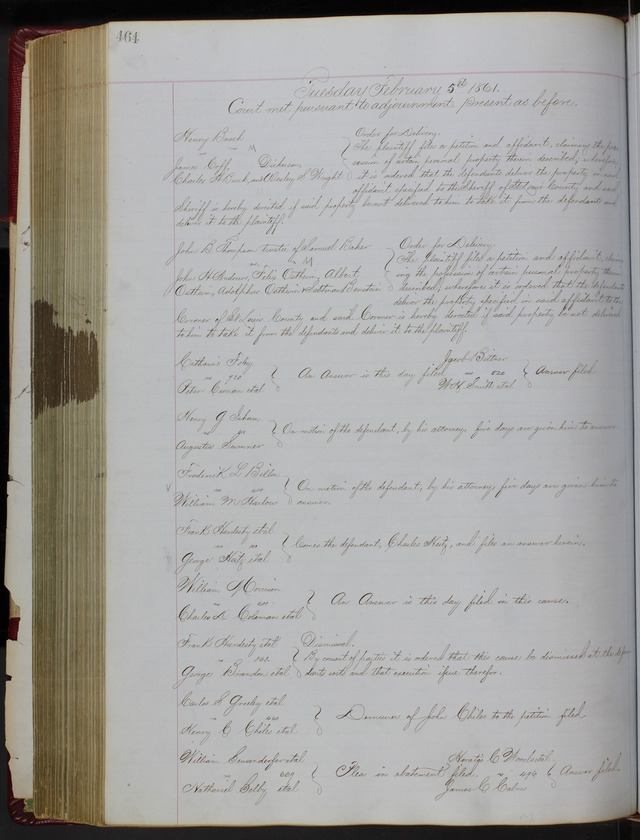 464
Tuesday February 5th 1861.
Court met pursuant to adjournment. Present as before.
Henry Order for Delivery.
The plaintiff files a petition and affidavit, claiming the pos-
James Dickerson, session of certain personal property therein described, wherefore
Charles and Wright it is ordered that the defendants deliver the property in said
affidavit specified to the Sheriff of St Louis County and said
Sheriff is hereby directed if said property be not delivered to him to take it from the defendants and
deliver it to the plaintiff.
John B. Thompson trustee of Samuel Baker Order for Delivery.
The Plaintiff files a petition and affidavit, claim-
John H Andrews, Felix Albert ing the possession of certain personal property therein
Adolphus and described, wherefore it is ordered that the defendants
deliver the property specified in said affidavit to the
Coroner of St Louis County and said Coroner is hereby directed if said property be not delivered
to him to take it from the defendants and deliver it to the plaintiff.
Jacob
An Answer is this day filed Answer filed
Peter et al Wm Smith et al
Henry G.
On motion of the defendant, by his attorney five days are given him to answer
Augustus Sumner
Frederick L.
On motion of the defendant, by his attorney, five days are given him to
William M Harlow answer.
Frank Hardesty et al
Comes the defendant, Charles and files an answer herein.
George et al
William Morrison
An Answer is this day filed in this cause.
Charles Coleman et al
Frank Hardesty et al Dismissal.
By consent of parties it is ordered that this cause be dismissed at the defen-
George Brandon et al dants cost and that execution issue therefor.
Carlos S. Greeley et al
Demurrer of John Chiles to the petition filed
Henry C Chiles et al
William et al Horatio C Wood et al
Plea in abatement filed. 494 Answer filed
Nathaniel Selby et al James C